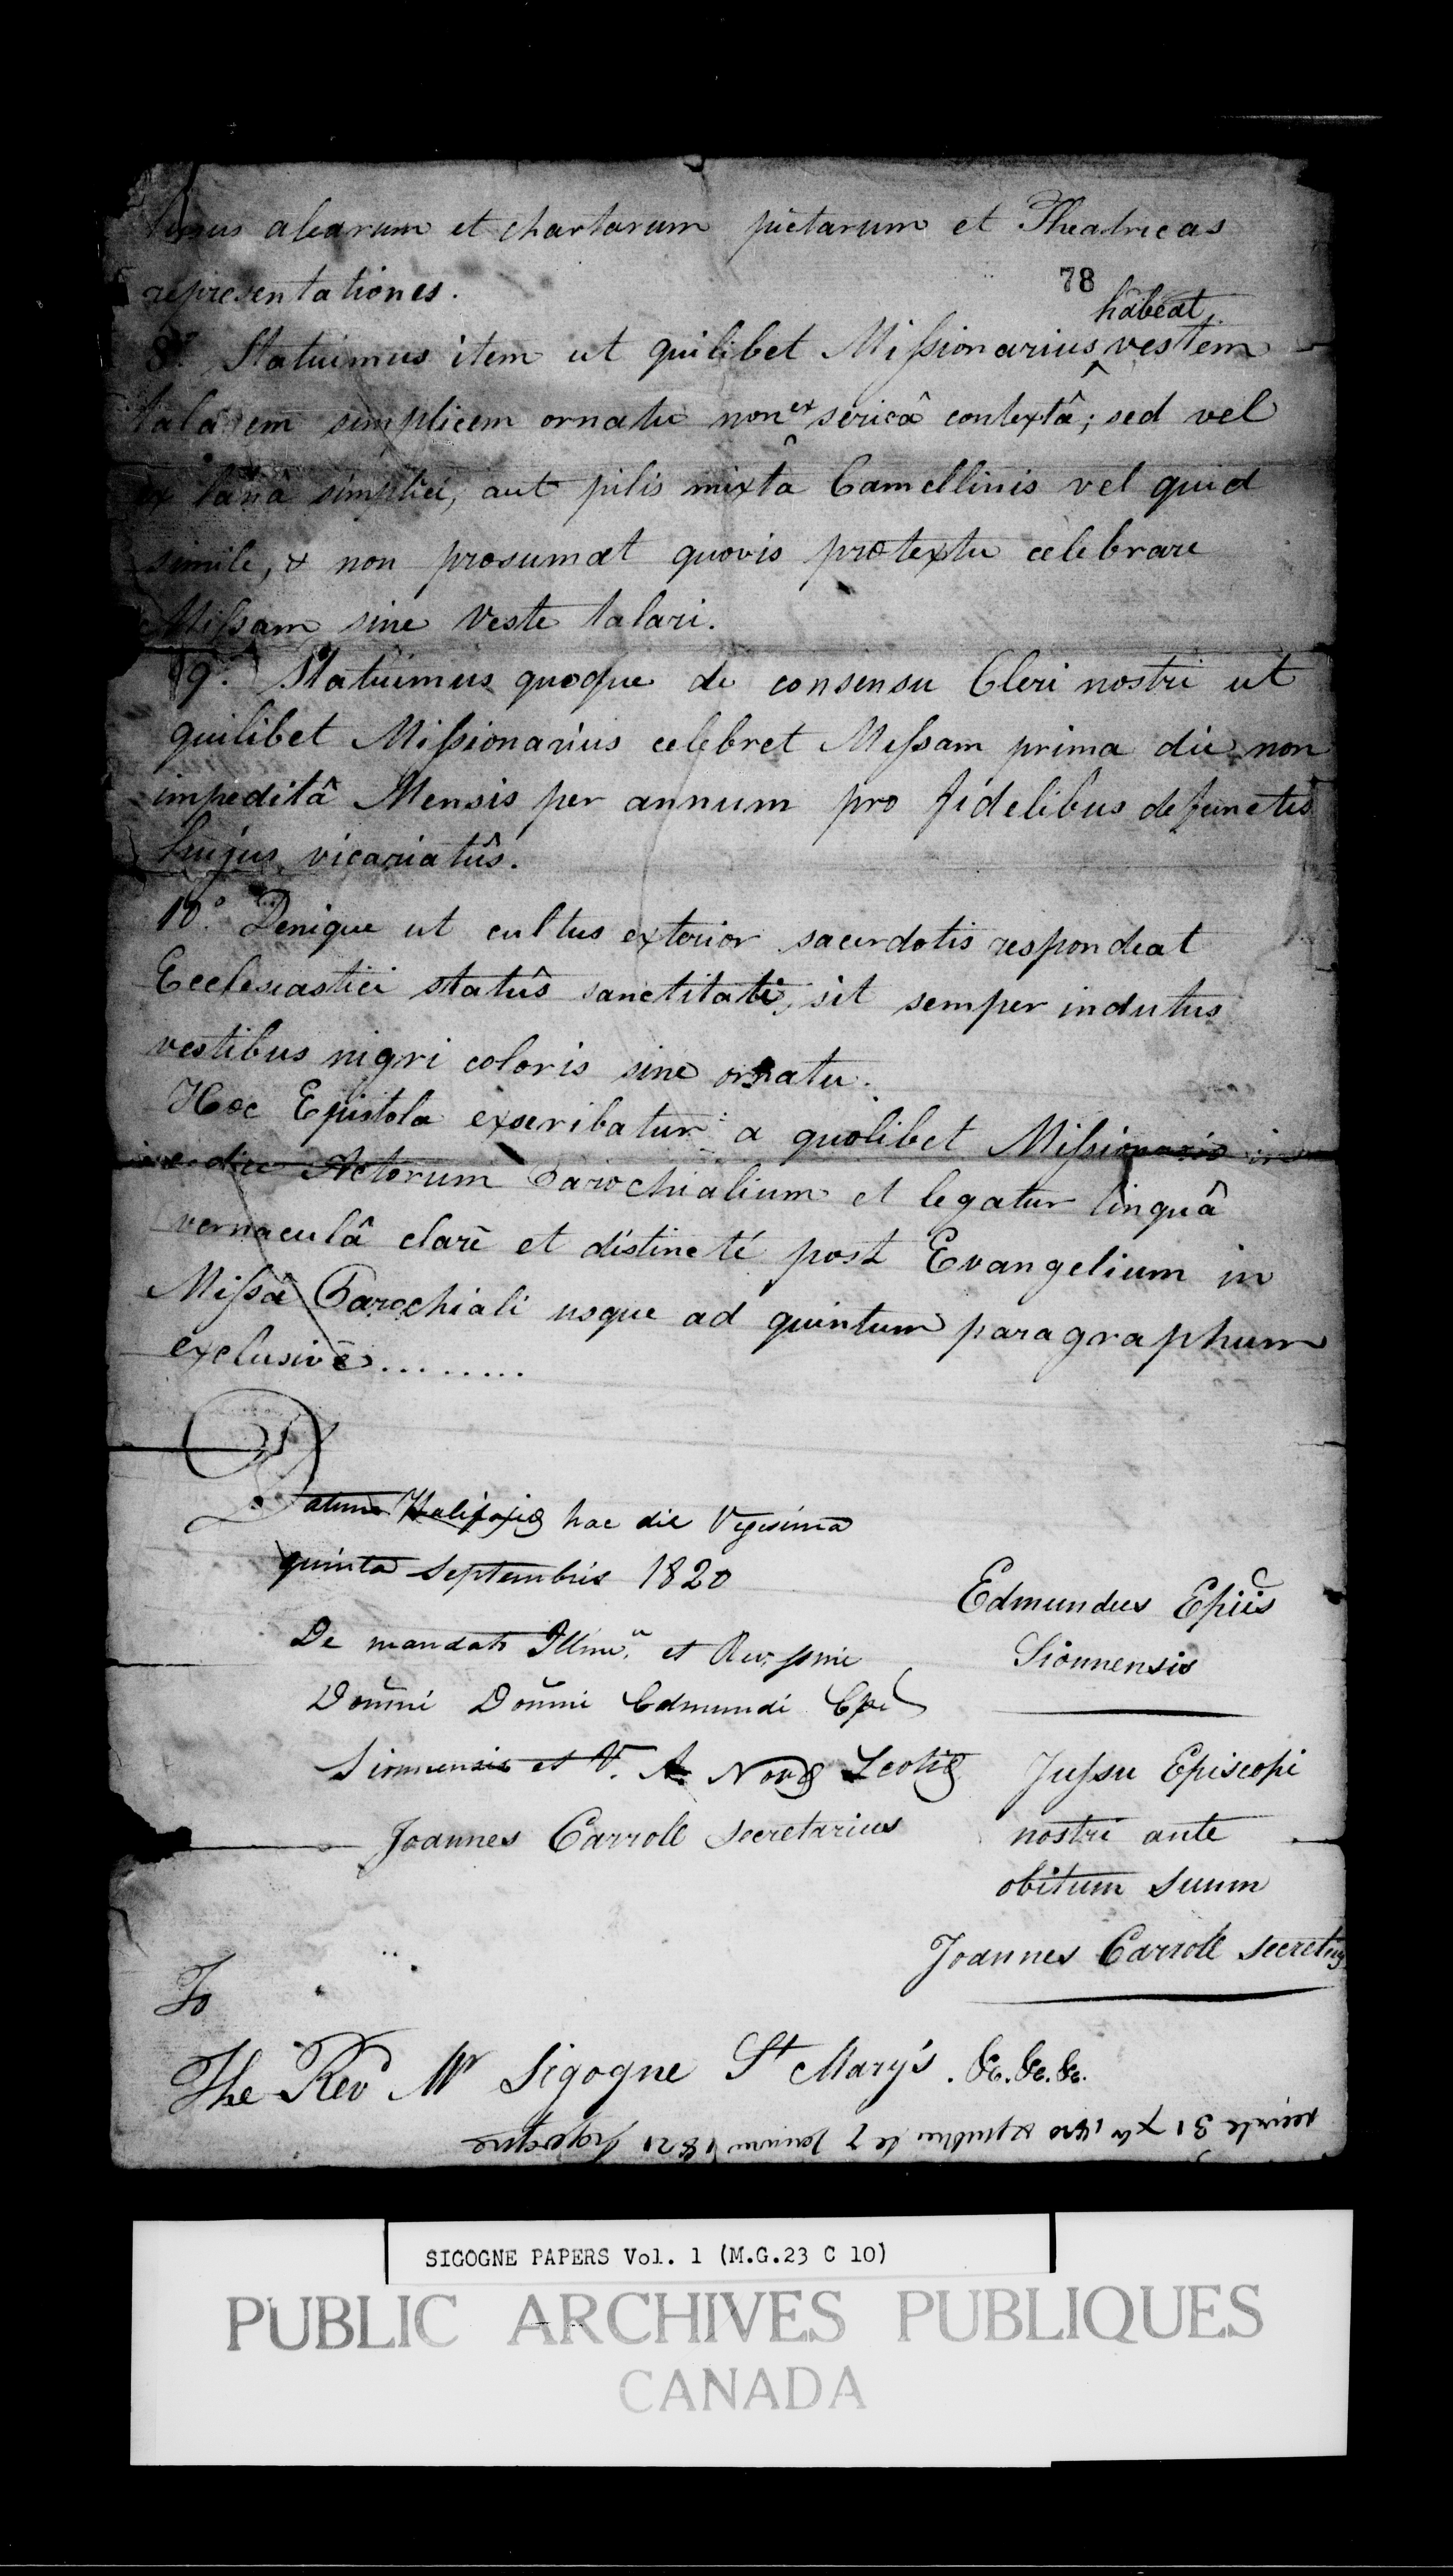 alearum et chartarum pictarum et Theatricas
representationes.
78
habeat
8.° Statuimus item ut quilibet Missionarius ^ vestem
talarem simplicem ornatu non ex ^ sericâ contextâ; sed vel
ex lanâ simplici, aut pilis mixtâ Camellinis vel quid
simile, & non præsumat quovis prætextu celebrare
Missam sine Veste talari.
9.° Statuimus quoque de consensu Cleri nostri ut
quilibet Missionarius celebret Messam prima die non
impeditâ Mensis per annum pro fidelibus defunctis
hujus vicariatûs.
10.° Denique ut cultus exterior sacerdotis respondeat
Ecclesiastici statûs sanctitati, sit semper indutus
vestibus nigri coloris sine ornatu.
Hæc Epistola exscribatur a quolibet Missionario in
Actorum Parochialium et legatur linguâ
vernaculâ clarē et distincté post Evangelium in
Missâ Parochiali usque ad quintum paragraphum
exclusivē........
Datum Halifaxiæ hac die Vigesima
quinta Septembris 1820
De mandato Illmi. et Rev.ssmi
Domni Domni Edmundi Epi
Sionnensis et V. A. Novæ Scotiæ
Joannes Carroll Secretarius
Edmundus Epüs
Sionnensis
Jussu Episcopi
nostri ante
obitum suum
Joannes Carroll secretus
To
The Rev Mr Sigogne St Mary's. &c. &c. &c.
31 Xbr 1820 & publiée le 7 Janvier 1821 Sigogne
SIGOGNE PAPERS Vol. 1 (M.G.23 C 10)
PUBLIC ARCHIVES PUBLIQUES
CANADA